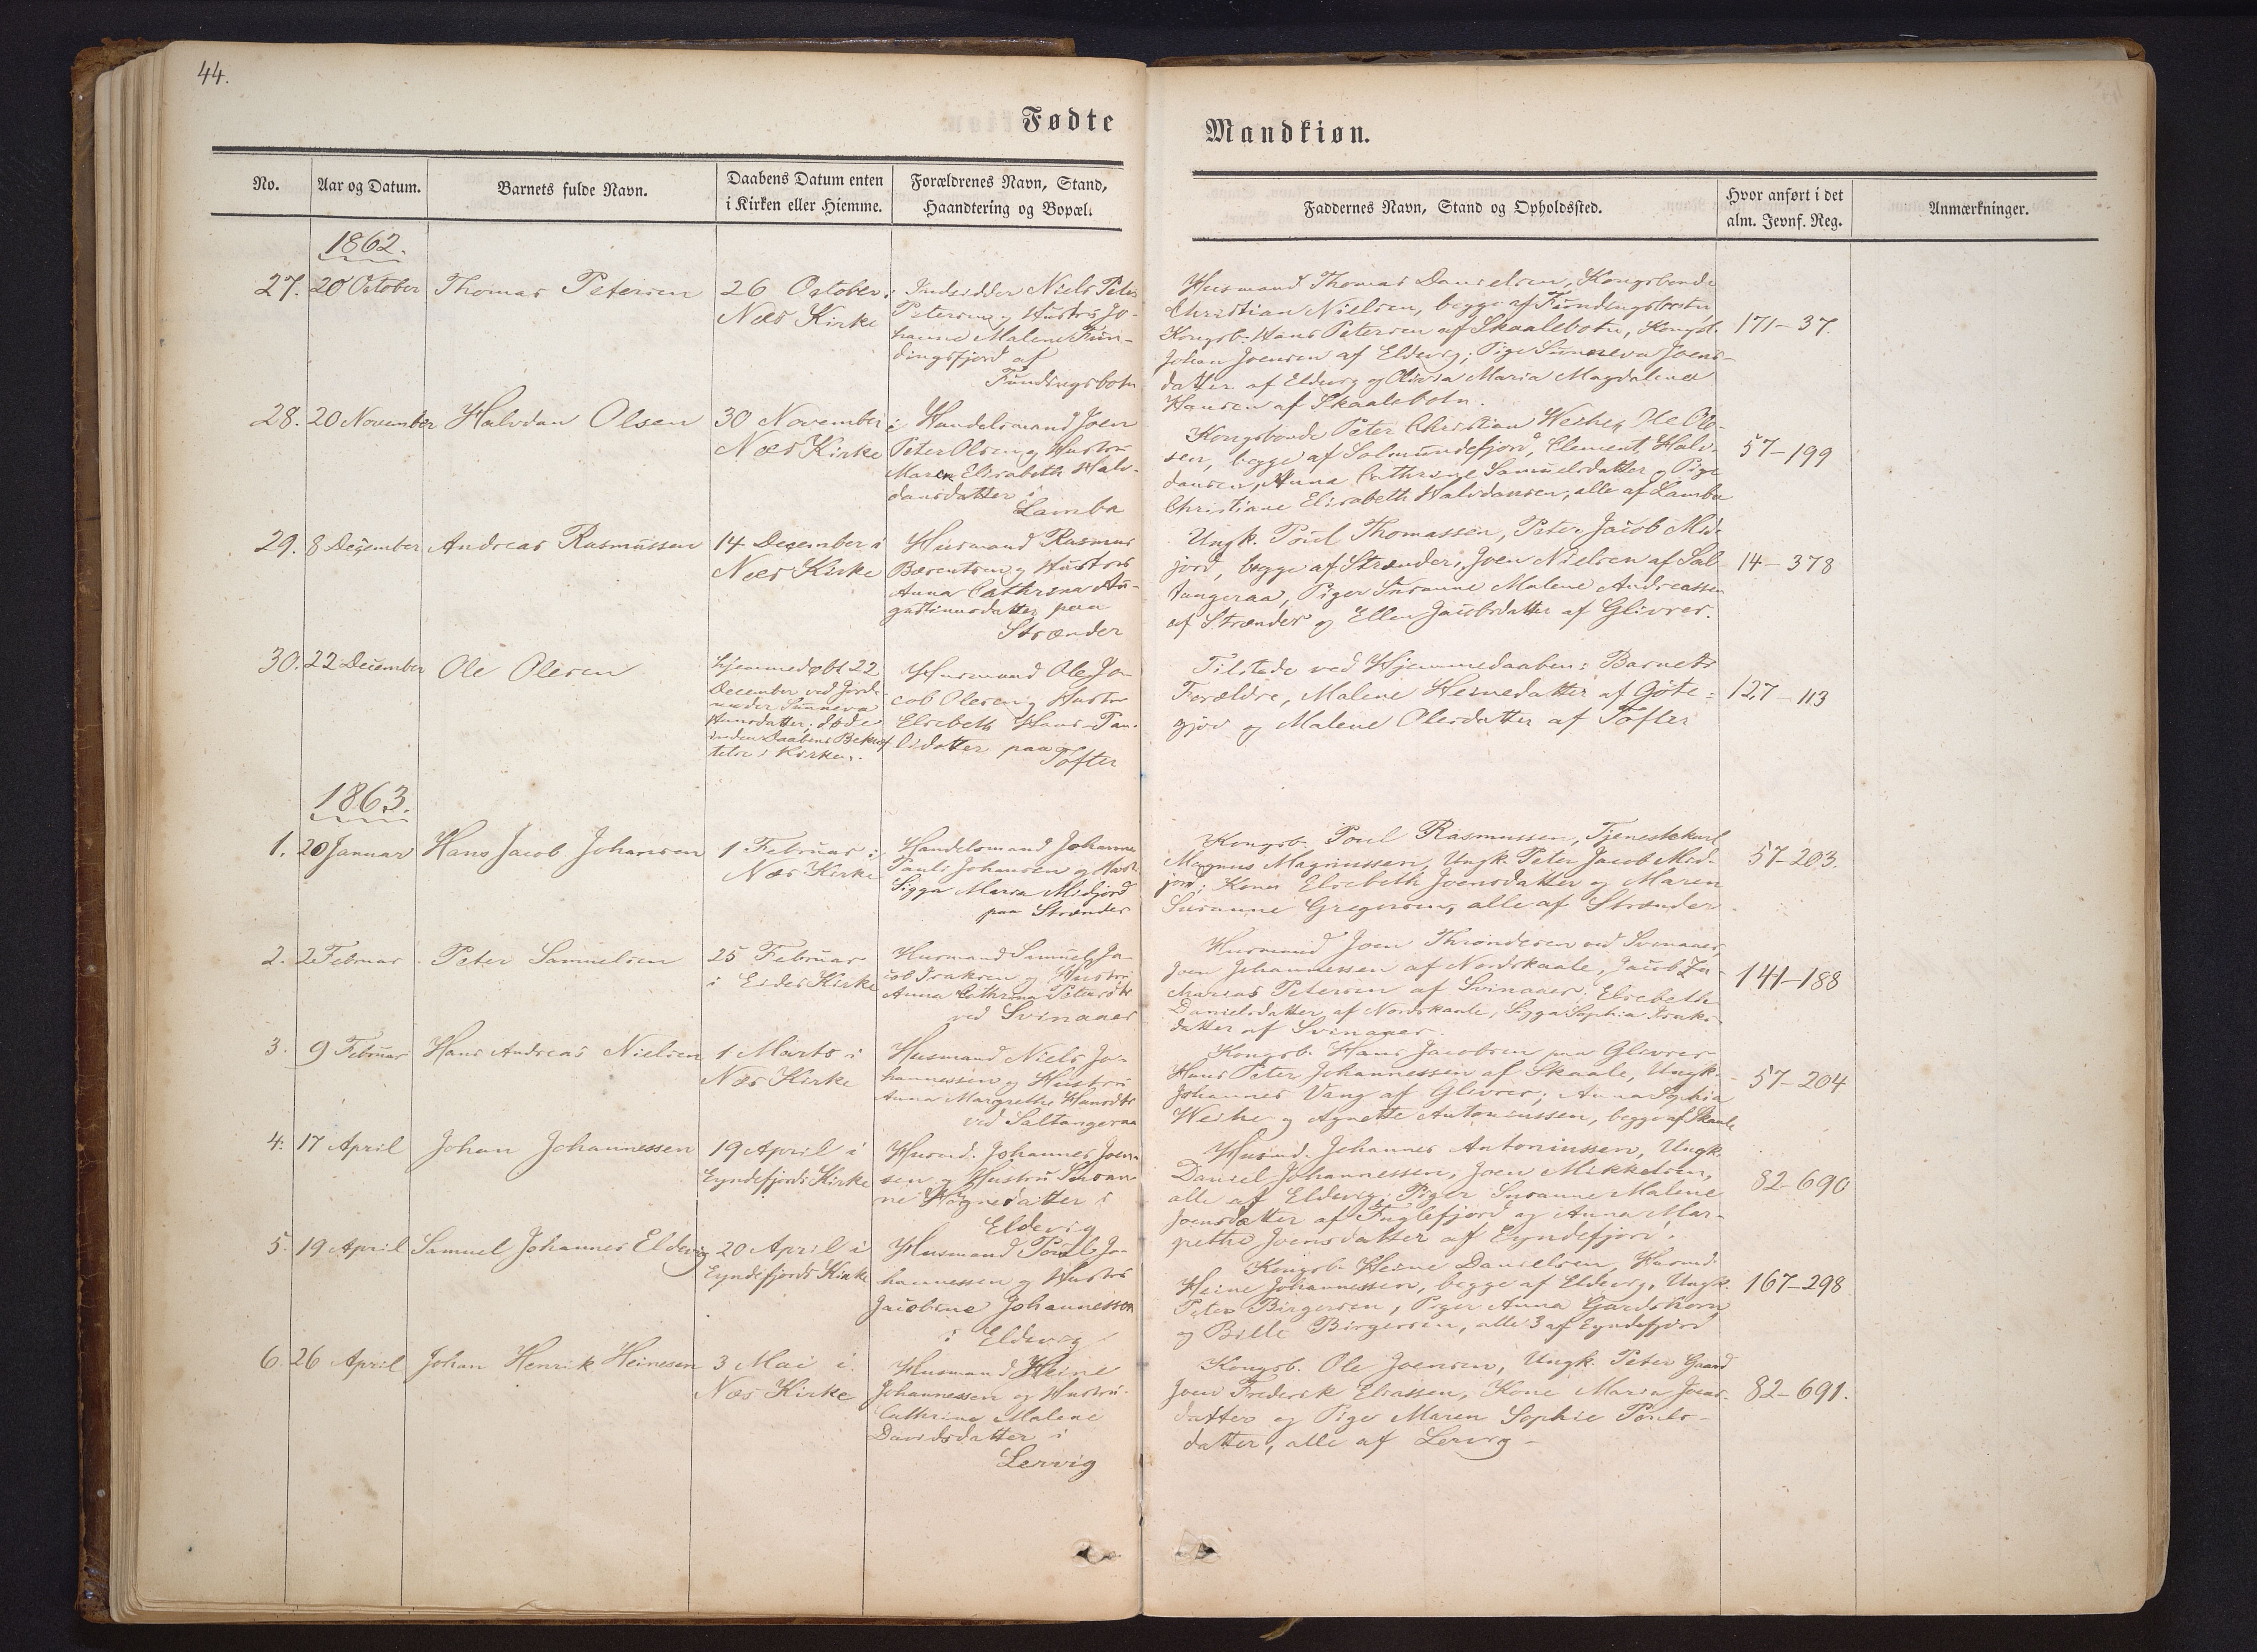 44.
Fødte
Mandkiøn.
No.
Aar og Datum.
Barnets fulde Navn.
Daabens Datum enten
i Kirken eller Hiemme.
Forældrenes Navn, Stand,
Haandtering og Bopæl.
Faddernes Navn, Stand og Opholdssted.
Hvor anført i det
alm. Jevnf. Reg.
Anmærkninger.
1862.
27.
20 October
Thomas Petersen
26 October i
Næs Kirke
Indsidder Niels Peter
Petersen og Hustru Jo-
hanne Malene Fun-
dingsfjord af
Fundingsbotn
Husmand Thomas Danielsen, Kongsbonde
Christian Nielsen, begge af Fundingsbotn,
Kongsb. Hans Petersen af Skaalebotn, Kongsb.
Johan Joensen af Eldevig; Pige Sunneva Joens-
datter af Eldevig og Olivia Maria Magdalena
Hansen af Skaalebotn.
171-37.
28.
20 November
Halvdan Olsen
30 November i
Næs Kirke
Handelsmand Joen
Peter Olsen og Hustru
Maren Elisabeth Halv-
dansdatter i
Lamba
Kongsbonde Peter Christian Weihe, Ole Ole-
sen, begge af Solmundefjord, Clement Halv-
dansen, Anna Cathrine Samuelsdatter, Pige
Christiane Elisabeth Halvdansen, alle af Lamba
57-199
29.
8 December
Andreas Rasmussen
14 December i
Næs Kirke
Husmand Rasmus
Berentsen og Hustru
Anna Cathrina Au-
gustinusdatter paa
Strænder
Ungk. Poul Thomassen, Peter Jacob Mid-
jord, begge af Strænder, Joen Nielsen af Sal-
tangeraa, Piger Susanne Malene Andreassen
af Strænder og Ellen Jacobsdatter af Glivrer.
14-378
30.
22 December
Ole Olesen
hjemmedøbt 22
December ved Jord-
moder Sunneva
Hansdatter; døde
inden Daabens Bekræf
telse i Kirken.
Husmand Ole Ja-
cob Olesen og Hustru
Elsebeth Hans-Pau-
lidatter paa
Tofter
Tilstede ved Hjemmedaaben: Barnets
Forældre, Malene Heinedatter af Gøte-
gjov og Malene Olesdatter af Tofter
127-113
1863.
1.
20 Januar
Hans Jacob Johansen
1 Februar i
Næs Kirke
Handelsmand Johannes
Pauli Johansen og Hustr.
Sigga Maria Midjord
paa Strænder
Kongsb. Poul Rasmussen, Tjenestekarl
Magnus Magnussen, Ungk. Peter Jacob Mid-
jord; Koner Elsebeth Joensdatter og Maren
Susanne Gregersen, alle af Strænder
57-203.
2.
2 Februar
Peter Samuelsen
25 Februar
i Eides Kirke
Husmand Samuel Ja-
cob Isaksen og Hustru
Anna Cathrina Petersdtr
ved Svinaaer
Husmand Joen Throndesen ved Svinaaer,
Joen Johannessen af Nordskaale, Jacob Za-
charias Petersen af Svinaaer; Elsebeth
Danielsdatter af Nordskaale, Sigga Sophia Isaks-
datter af Svinaaer.
141-188
3.
9 Februar
Hans Andreas Nielsen
1 Marts i
Næs Kirke
Husmand Niels Jo-
hannessen og Hustru
Anna Margrethe Hansdtr
ved Saltangeraa
Kongsb. Hans Jacobsen paa Glivrer
Hans Peter Johannessen af Skaale, Ungk.
Johannes Vang af Glivrer; Anna Sophia
Weihe og Agnette Antoniussen, begge af Skaale
57-204
4.
17 April
Johan Johannessen
19 April i
Eyndefjords Kirke
Husmd. Johannes Joen-
sen og Hustru Susan-
ne Høgnedatter i
Eldevig
Husmd. Johannes Antoniussen, Ungk.
Daniel Johannessen, Joen Mikkelsen,
alle af Eldevig; Piger Susanne Malene
Joensdatter af Fuglefjord og Anna Mar-
grethe Joensdatter af Eyndefjord.
82-690
5.
19 April
Samuel Johannes Eldevig
20 April i
Eyndefjords Kirke
Husmand Poul Jo-
hannessen og Hustru
Jacobine Johannessen
i Eldevig
Kongsb. Heine Danielsen, Husmd.
Heine Johannessen, begge af Eldevig, Ungk.
Peter Birgersen, Piger Anna Gardshorn
og Bille Birgersen, alle 3 af Eyndefjord
167-298
6.
26 April
Johan Henrik Heinesen
3 Mai i
Næs Kirke
Husmand Heine
Johannessen og Hustru
Cathrine Malene
Davidsdatter i
Lervig
Kongsb. Ole Joensen, Ungk. Peter Gaard
Joen Frederik Eliassen, Kone Maria Joens-
datter og Pige Maren Sophie Pouls-
datter, alle af Lervig-
82-691.